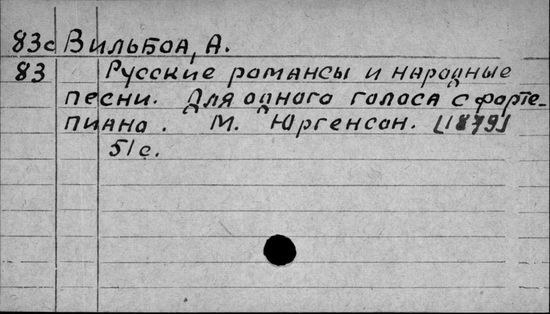 83с Вильбоа, А.
83 Русские романсы и народные
песни. Для одного голоса с форте-
пиано. М. Юргенсон. [1879]
51с.